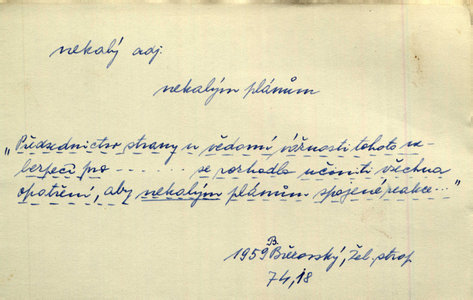 nekalý adj.
nekalým plánům
"Předsednictvo strany u vědomí vážnosti tohoto ne-
bezpečí pro - - - - - - se rozhodlo učiniti všechna
opatření, aby nekalým plánům spojené reakce..."
B.
1959 Březovský, Žel. strop
74,18